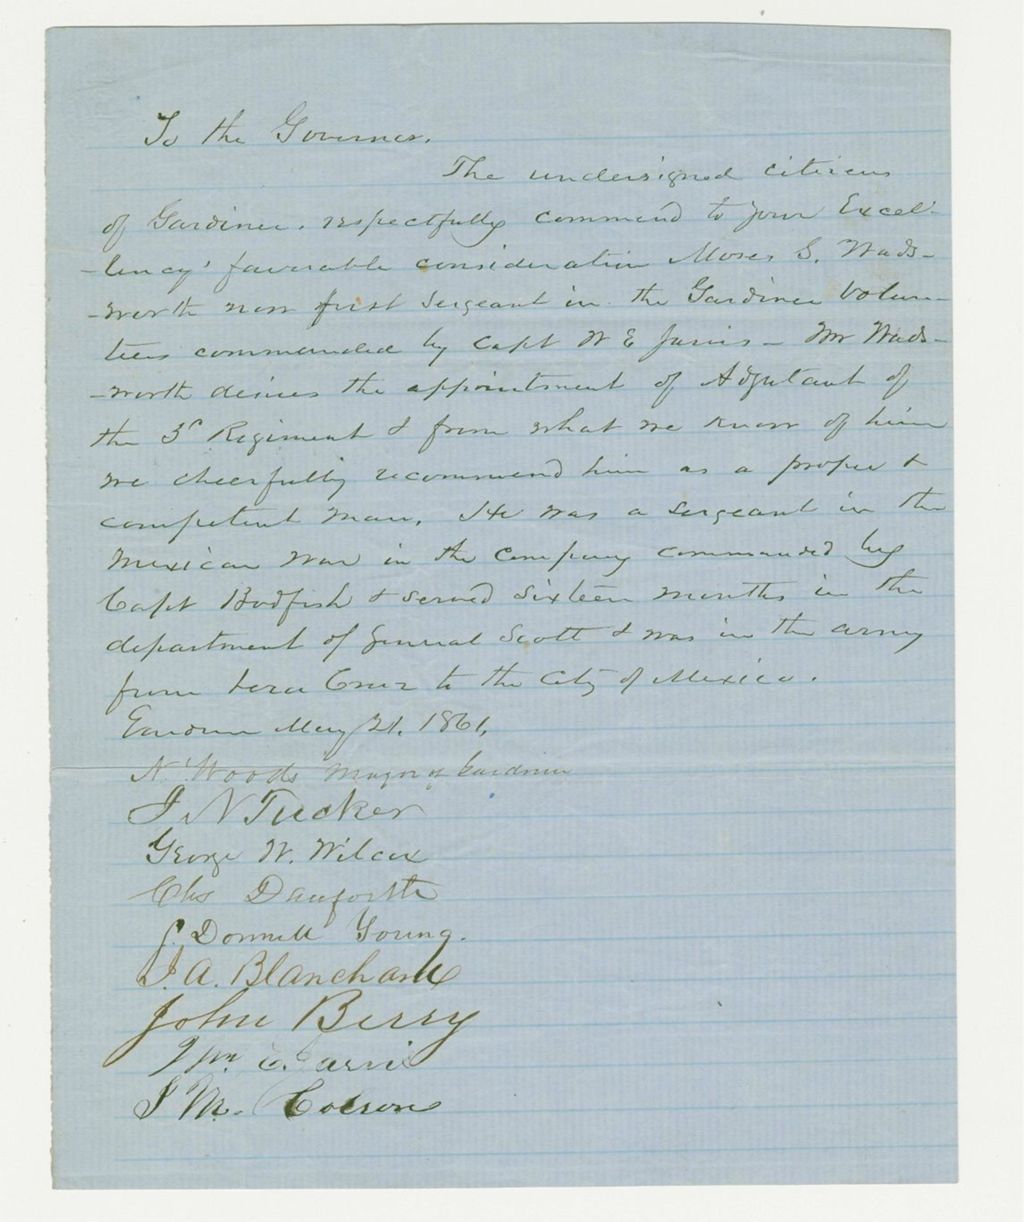 To the Governor.
The undersigned citizens
of Gardiner. respectfully commend to your Excel-
-lency' favorable consideration Moses S. Wads-
-worth now first Sergeant in the Gardiner Volun-
teers commanded by Capt W E Jarvis - Mr Wads-
-worth desires the appointment of Adjutant of
the 3d Regiment & from what we know of him
we cheerfully recommend him as a proper &
competent man. He was a sergeant in the
Mexican war in the company commanded by
Capt Bodfish & served sixteen months in the
department of General Scott & was in the army
from Vera Cruz to the City of Mexico.
Gardiner May 21. 1861.
N. Woods Mayor of Gardiner
J N Tucker
George W. Wilcox
Chs Danforth
J. Donnell Young.
J. A. Blanchard
John Berry
Wm E. Jarvis
J M. Colson